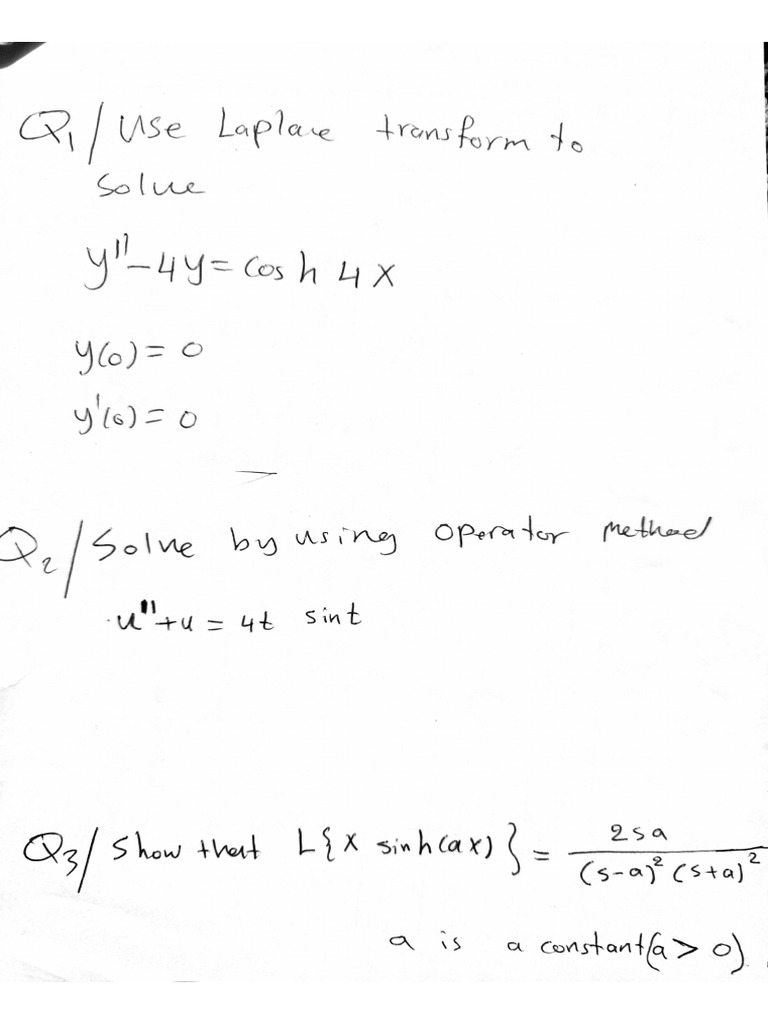 Q1/ Use Laplace transform to
solve
y"-4y= cos h 4x
y(0) = 0
y'(0) = 0
Q2/ Solve by using operator method
u"+u = 4t sint
Q3/ Show that L{x sinh(ax)} = 2sa / (s-a)² (s+a)²
a is a constant(a > 0).